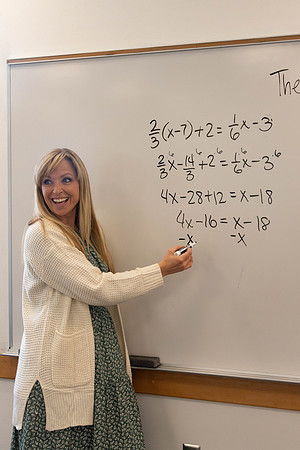 The
2/3(x-7)+2=1/6x-3
2/3⁶x-14/3⁶+2⁶=1/6⁶x-3⁶
4x-28+12=x-18
4x-16=x-18
-x -x